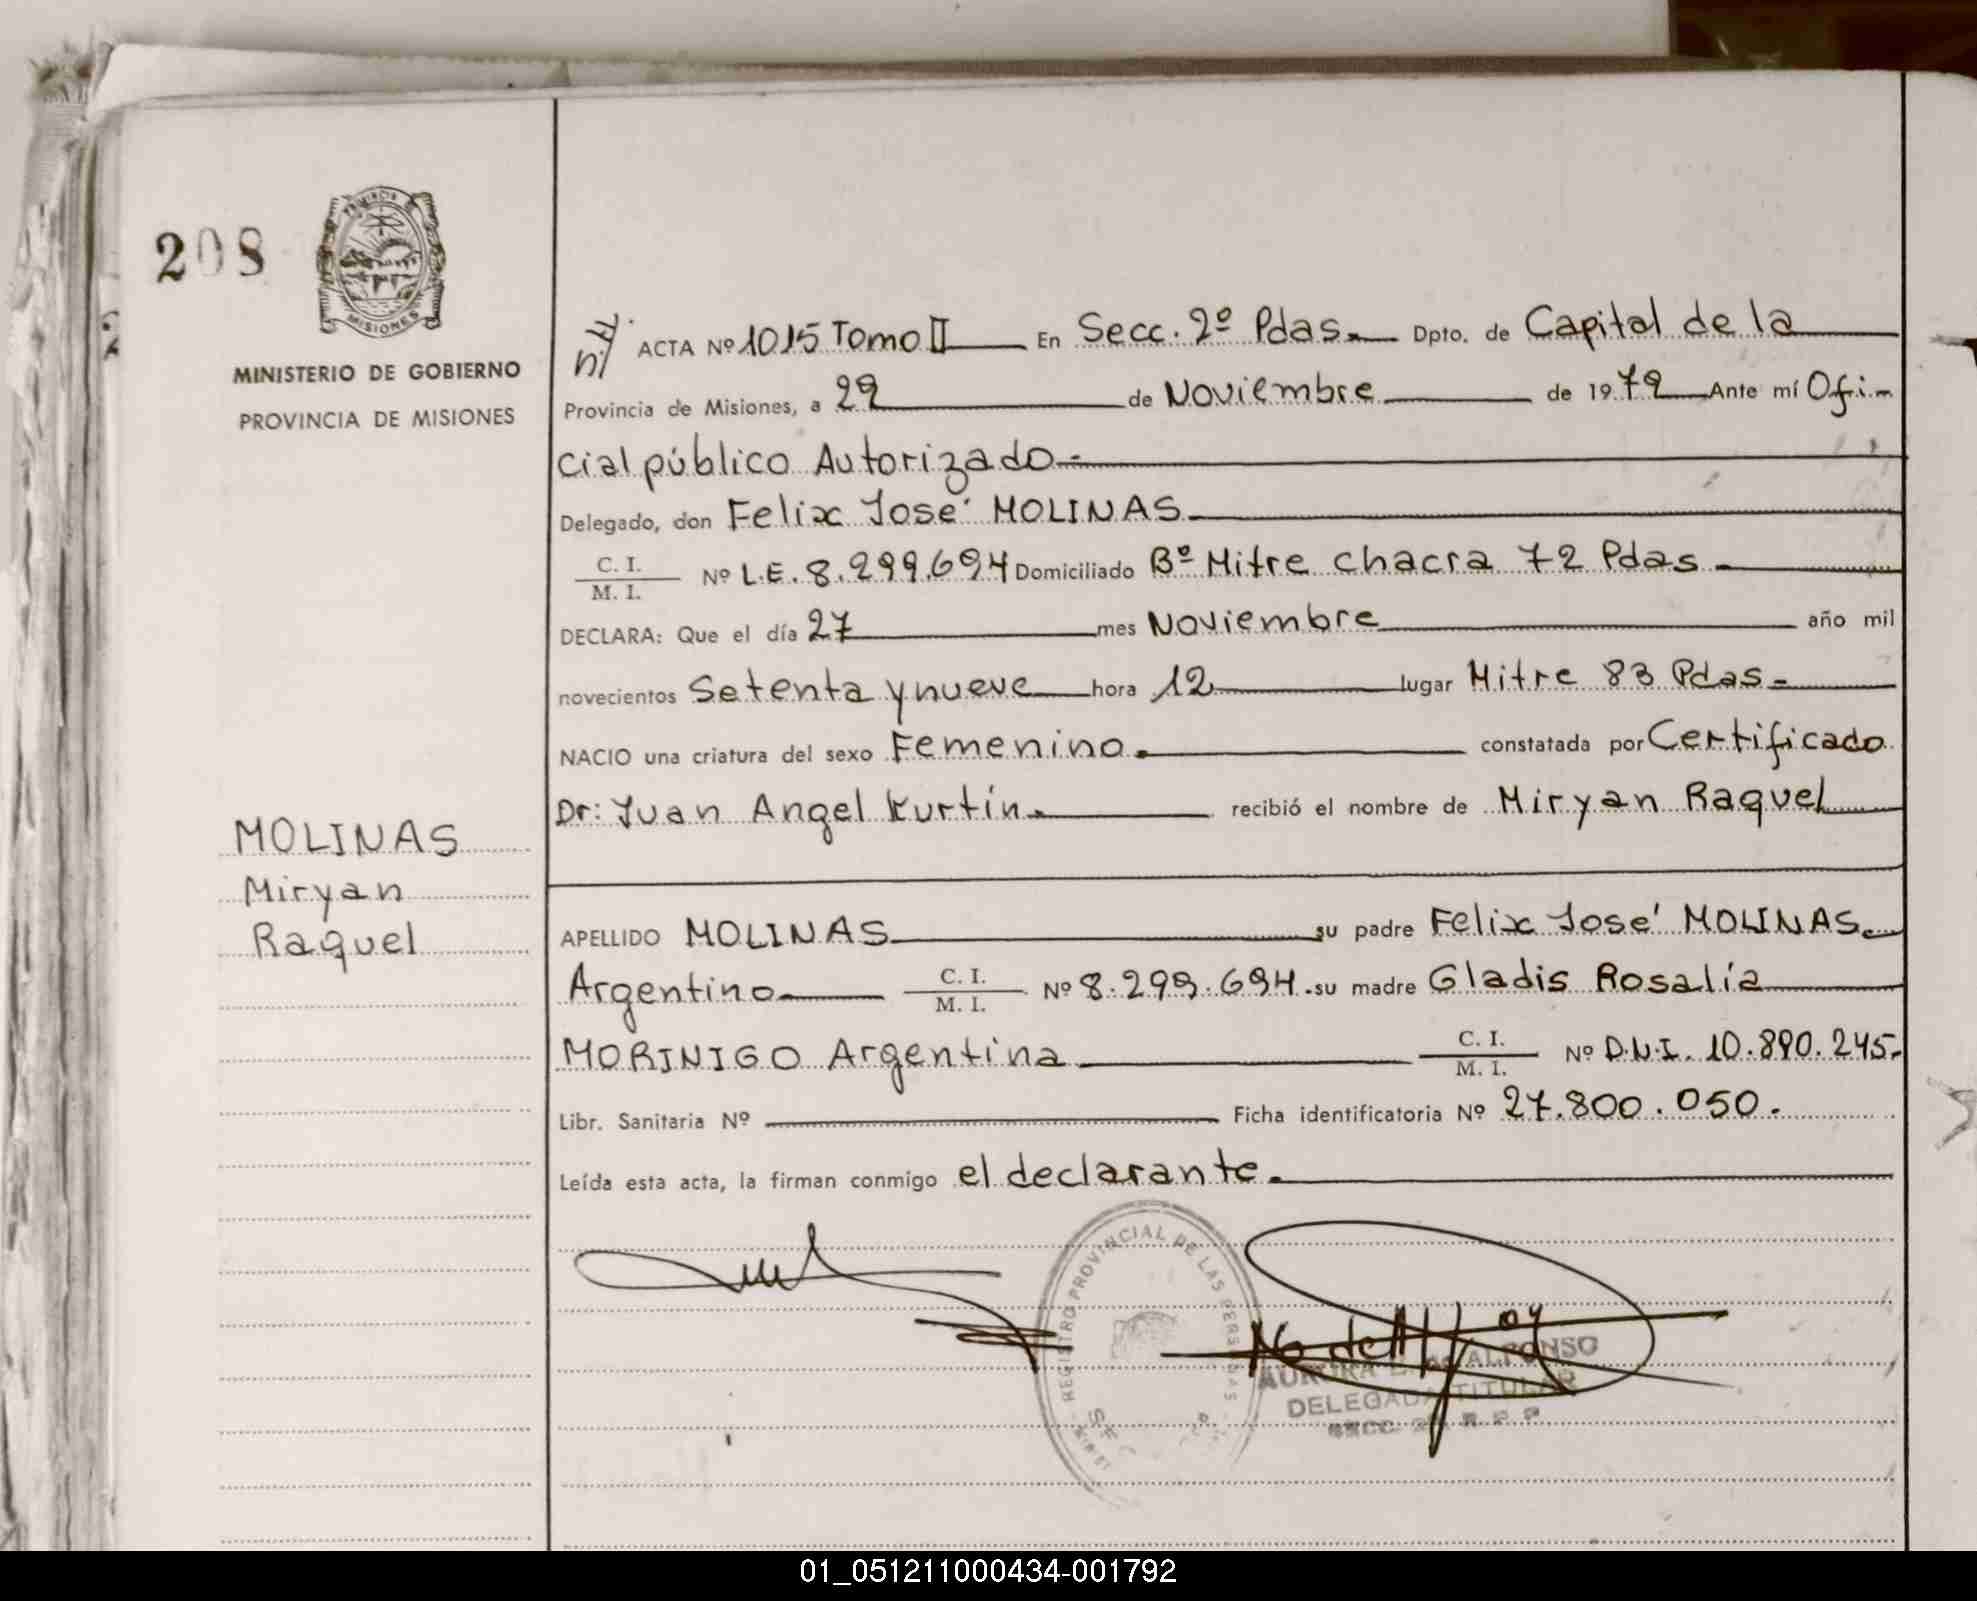 208
PROVINCIA DE
MISIONES
MINISTERIO DE GOBIERNO
PROVINCIA DE MISIONES
ACTA Nº 1015 Tomo II En Secc. 2º Pdas. Dpto. de Capital de la
Provincia de Misiones, a 29 de Noviembre de 1979 Ante mí Ofi-
cial público Autorizado.-
Delegado, don Felix José MOLINAS
C. I.
M. I. Nº L.E. 8.299.694 Domiciliado Bº Mitre chacra 72 Pdas.
DECLARA: Que el día 27 mes Noviembre año mil
novecientos Setenta y nueve hora 12 lugar Mitre 83 Pdas.-
NACIO una criatura del sexo Femenino. constatada por Certificado
Dr: Juan Angel Kurtín. recibió el nombre de Miryan Raquel
MOLINAS
Miryan
Raquel
APELLIDO MOLINAS su padre Felix José MOLINAS.
Argentino C. I.
M. I. Nº 8.299.694. su madre Gladis Rosalía
MORINIGO Argentina C. I.
M. I. Nº D.N.I. 10.890.245.
Libr. Sanitaria Nº Ficha identificatoria Nº 27.800.050.
Leída esta acta, la firman conmigo el declarante.
REGISTRO PROVINCIAL DE LAS PERSONAS
AURORA de ALFONSO
DELEGADA TITULAR
01_051211000434-001792